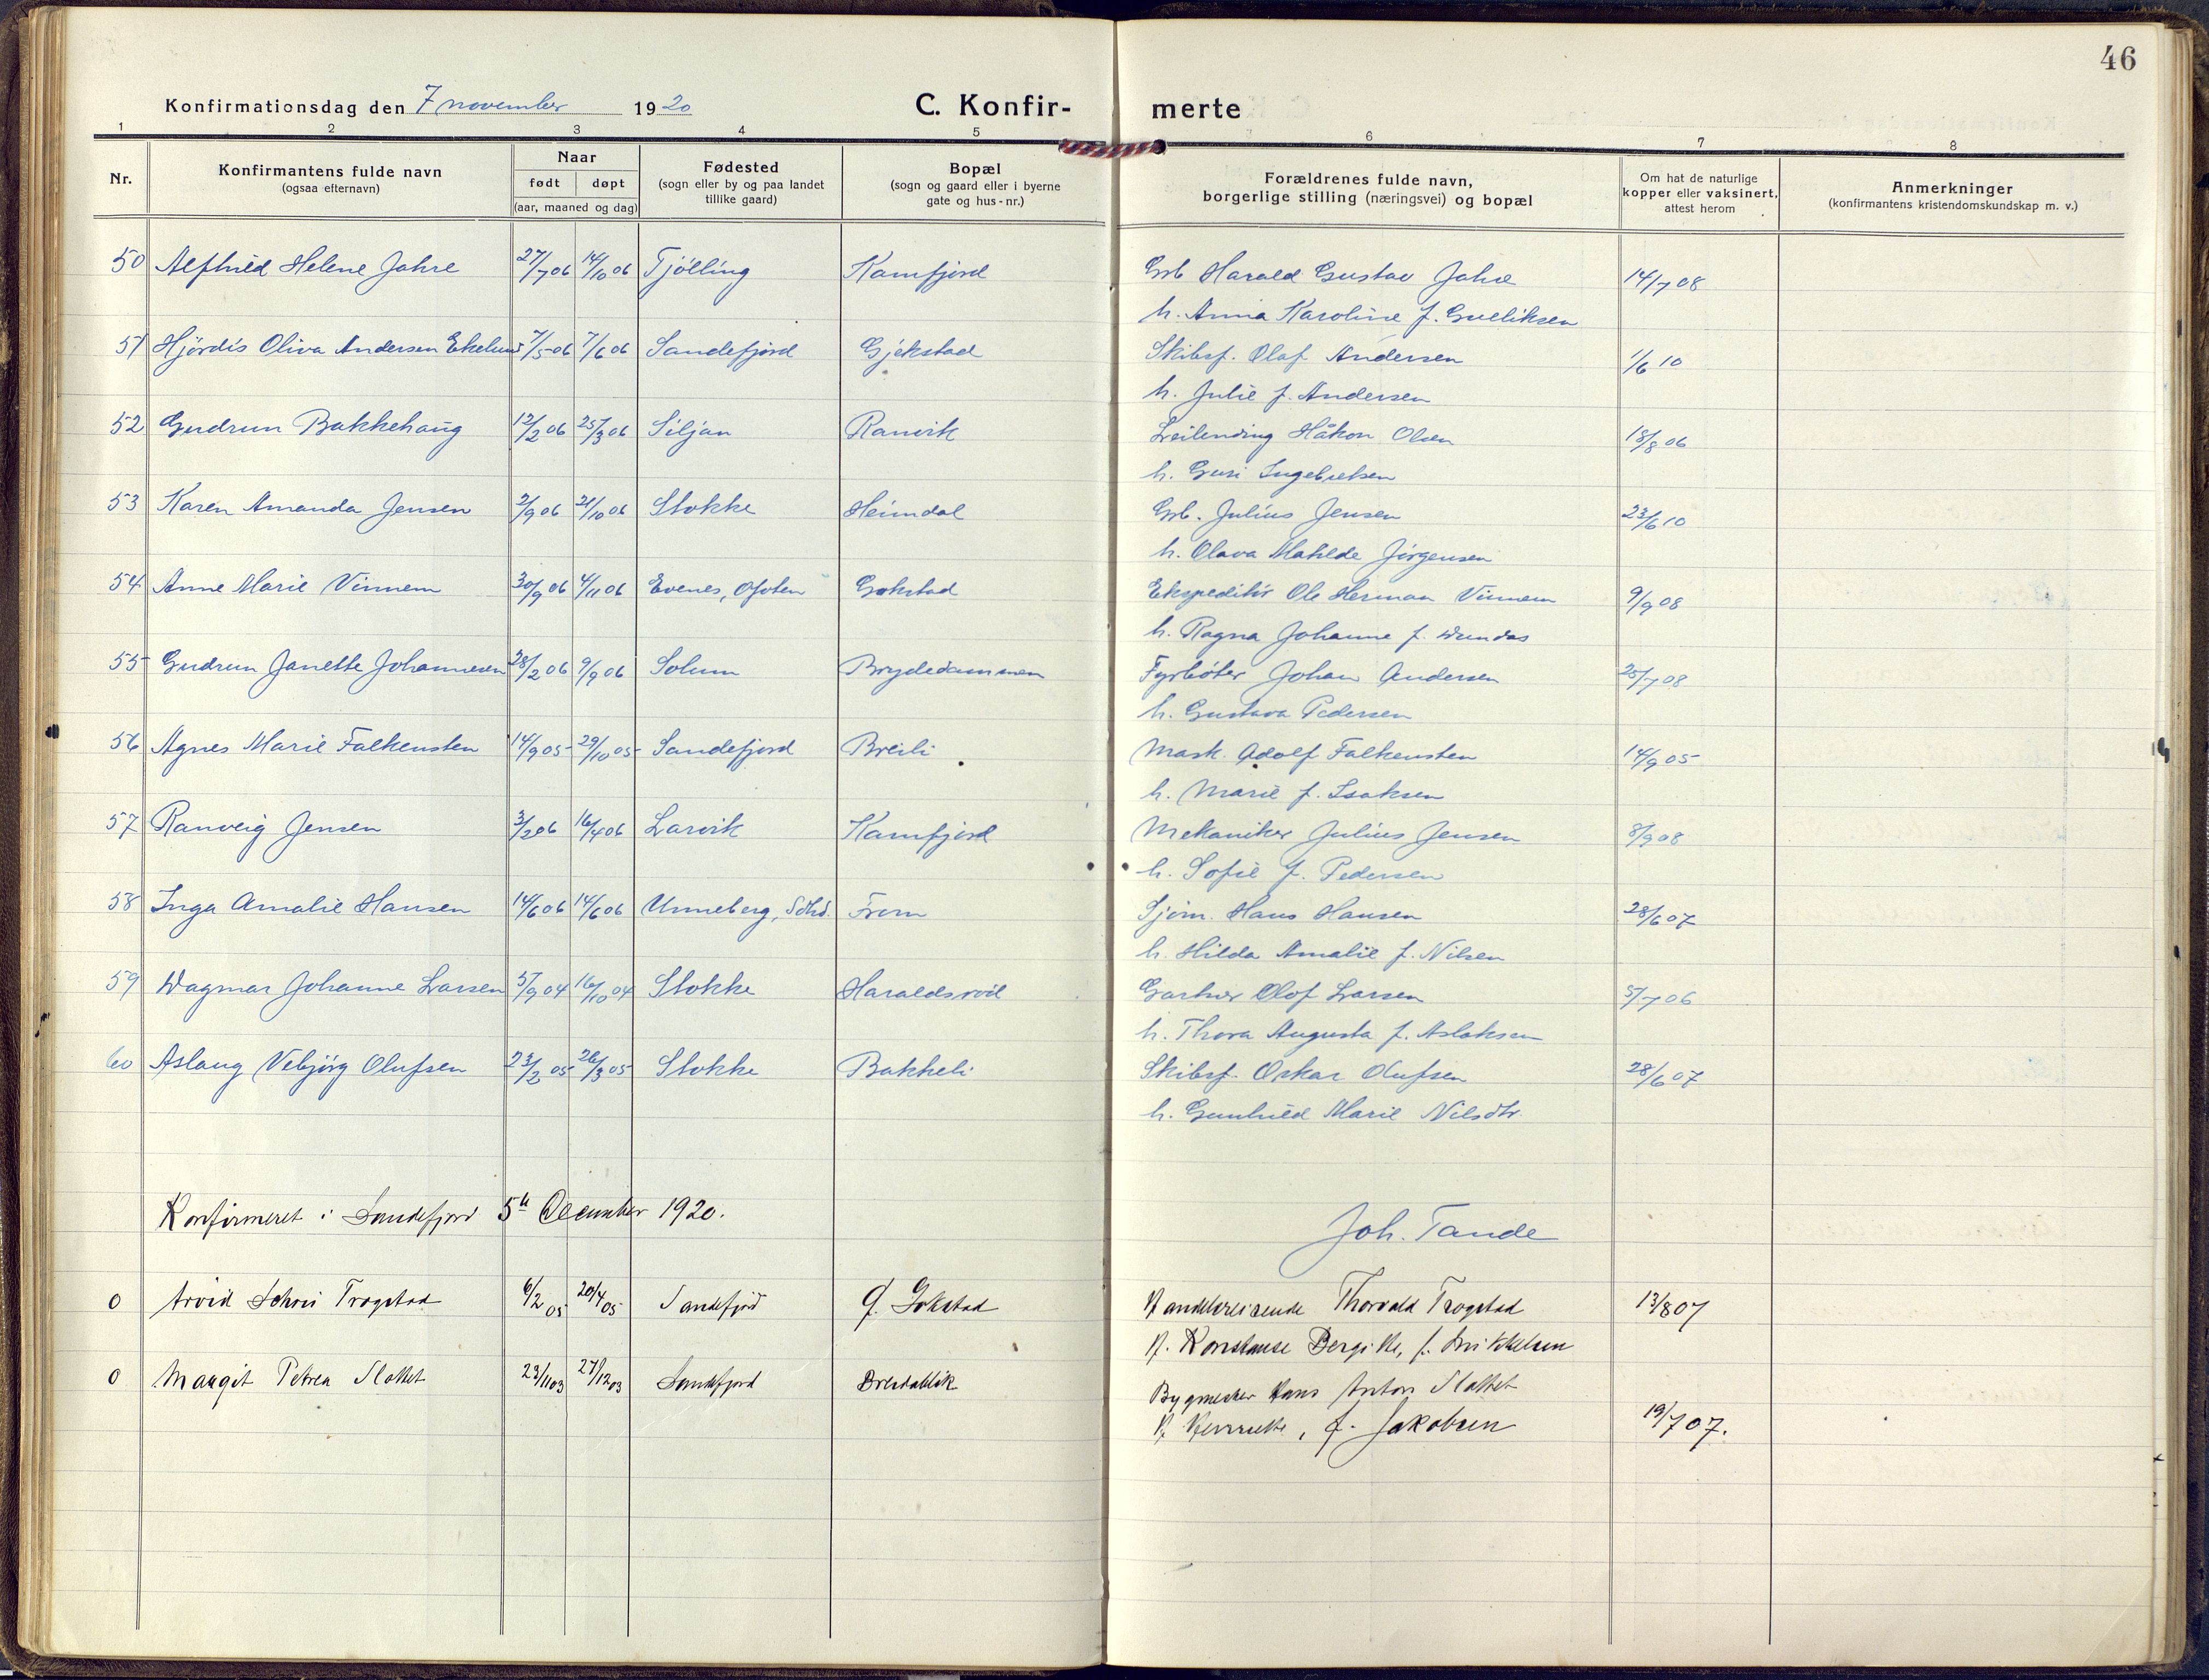 46
Konfirmationsdag den 7 november 1920 C. Konfir- merte
1 2 3 4 5 6 7 8
Nr. Konfirmantens fulde navn (ogsaa efternavn) Naar født døpt (aar, maaned og dag) Fødested (sogn eller by og paa landet tillike gaard) Bopæl (sogn og gaard eller i byerne gate og hus-nr.) Forældrenes fulde navn, borgerlige stilling (næringsvei) og bopæl Om hat de naturlige kopper eller vaksinert, attest herom Anmerkninger (konfirmantens kristendomskundskap m. v.)
50 Alfhild Helene Jahre 27/7 06 14/10 06 Tjölling Kamfjord Grb Harald Gustav Jahre 14/7 08
h. Anna Karoline f. Gulliksen
51 Hjördis Oliva Andersen Ekelund 7/5 06 7/6 06 Sandefjord Gjekstad Skibsf. Olaf Andersen 1/6 10
h. Julie f. Andersen
52 Gudrun Bakkehaug 12/2 06 25/3 06 Siljan Ranvik Leilending Håkon Olsen 18/8 06
h. Guri Ingebretsen
53 Karen Amanda Jensen 2/9 06 21/10 06 Stokke Heimdal Grb. Julius Jensen 23/6 10
h. Olava Matilde Jörgensen
54 Anne Marie Vinnem 30/9 06 4/11 06 Evenes, Ofoten Gokstad Ekspeditör Ole Herman Vinnem 9/9 08
h. Ragna Johanne f. Dundas
55 Gudrun Janette Johannesen 28/2 06 9/9 06 Solum Brydedammen Fyrböter Johan Andersen 25/7 08
h. Gustava Pedersen
56 Agnes Marie Falkensten 14/9 05 29/10 05 Sandefjord Breili Mask. Adolf Falkensten 14/9 05
h. Marie f. Isaksen
57 Ranveig Jensen 3/2 06 16/4 06 Larvik Kamfjord Mekaniker Julius Jensen 8/9 08
h. Sofie f. Pedersen
58 Inga Amalie Hansen 14/6 06 14/6 06 Unneberg, Sdhd. Frem Sjöm. Hans Hansen 28/6 07
h. Hilda Amalie f. Nilsen
59 Dagmar Johanne Larsen 5/9 04 16/10 04 Stokke Haraldsvoll Gartner Olof Larsen 5/7 06
h. Thora Augusta f. Aslaksen
60 Aslaug Vebjörg Olufsen 23/2 05 26/3 05 Stokke Bakkeli Skibsf. Oskar Olufsen 28/6 07
h. Gunhild Marie Nilsdtr.
Konfirmeret i Sandefjord 5te December 1920.
Joh. Tande
0 Arvid Trogstad 6/2 05 20/4 05 Sandefjord G. Gokstad Handelsreisende Thorvald Trogstad 13/8 07
H. Konstanse Bergitte, f. Mikkelsen
0 Margit Petrea Slottet 23/11 03 27/12 03 Sandefjord Bygmester Hans Anton Slottet
H. Henriette, f. Jakobsen 19/7 07.